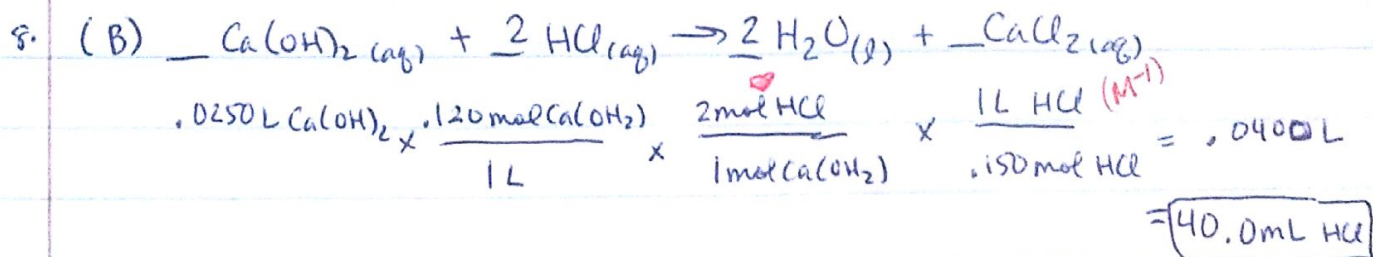 8. (B) _ Ca(OH)₂ (aq) + 2 HCl (aq) → 2 H₂O (l) + _ CaCl₂ (aq)
.0250 L Ca(OH)₂ x .120 mol Ca(OH₂) / 1 L x 2 mol HCl / 1 mol Ca(OH₂) x 1 L HCl (M⁻¹) / .150 mol HCl = .0400 L
= 40.0 mL HCl